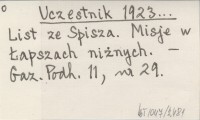 Uczestnik 1923...
List ze Spisza. Misje w
Łapszach niżnych. —
Gaz. Podh. 11, nr 29.